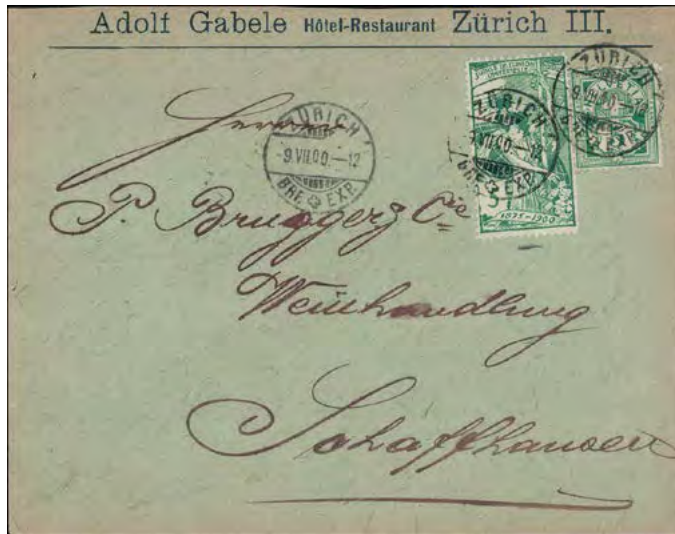 Adolf Gabele Hôtel-Restaurant Zürich III.
ZÜRICH
-9.VII.00.-12
BRF. EXP.
ZÜRICH
-9.VII.00.-12
BRF. EXP.
ZÜRICH
-9.VII.00.-12
BRF. EXP.
5
1875-1900
Herren
P. Brugger & Cie
Weinhandlung
Schaffhausen